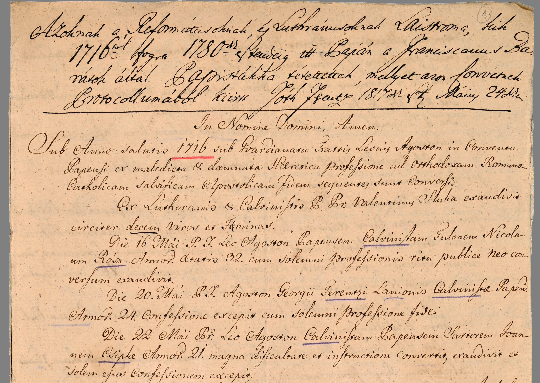 Azoknak a Reformátusoknak, és Lutheranusoknak Laistroma, kik
1716 fogva 1780 esztendeig itt Pápán a Franciscanus Ba-
rátok által Pápistákká tétettek, mellyet azon Conventnek
Protocollumábol kiirt Tóth Ferencz 24
In Nomine Domini, Amen.
Sub Anno salutis 1716 sub Guardianatu Fratris Leonis Agoston in Conventu
Papensi ex maledicta & damnata Haeretica professione ad Orthodoxam Romano
Catholicam Apostolicam fidem sequentes sunt Conversi.
Ex Lutheranis & Calvinistis P. Fr. Valentinus exaudivit
circiter decem viros et feminas.
Die 16 Mái P. F. Leo Agoston Papensem Calvinistam Juvenem Nicola-
um Annor. aetatis 32 cum solemni professionis ritu publice neo con-
versum exaudivit.
Die 20 Mái P. F. Agoston Georgii Ferentzi Lanionis Calvinistae Papensis
Annor. 24 Confessione excepit cum solemni professione fidei
Die 22 Mái Pr. Leo Agoston Calvinistam Papensem Joan-
nem Csipke Annor. 21 magna dificultate et instructione convertit, exaudivit et
solem ejus Confessionem excepit.